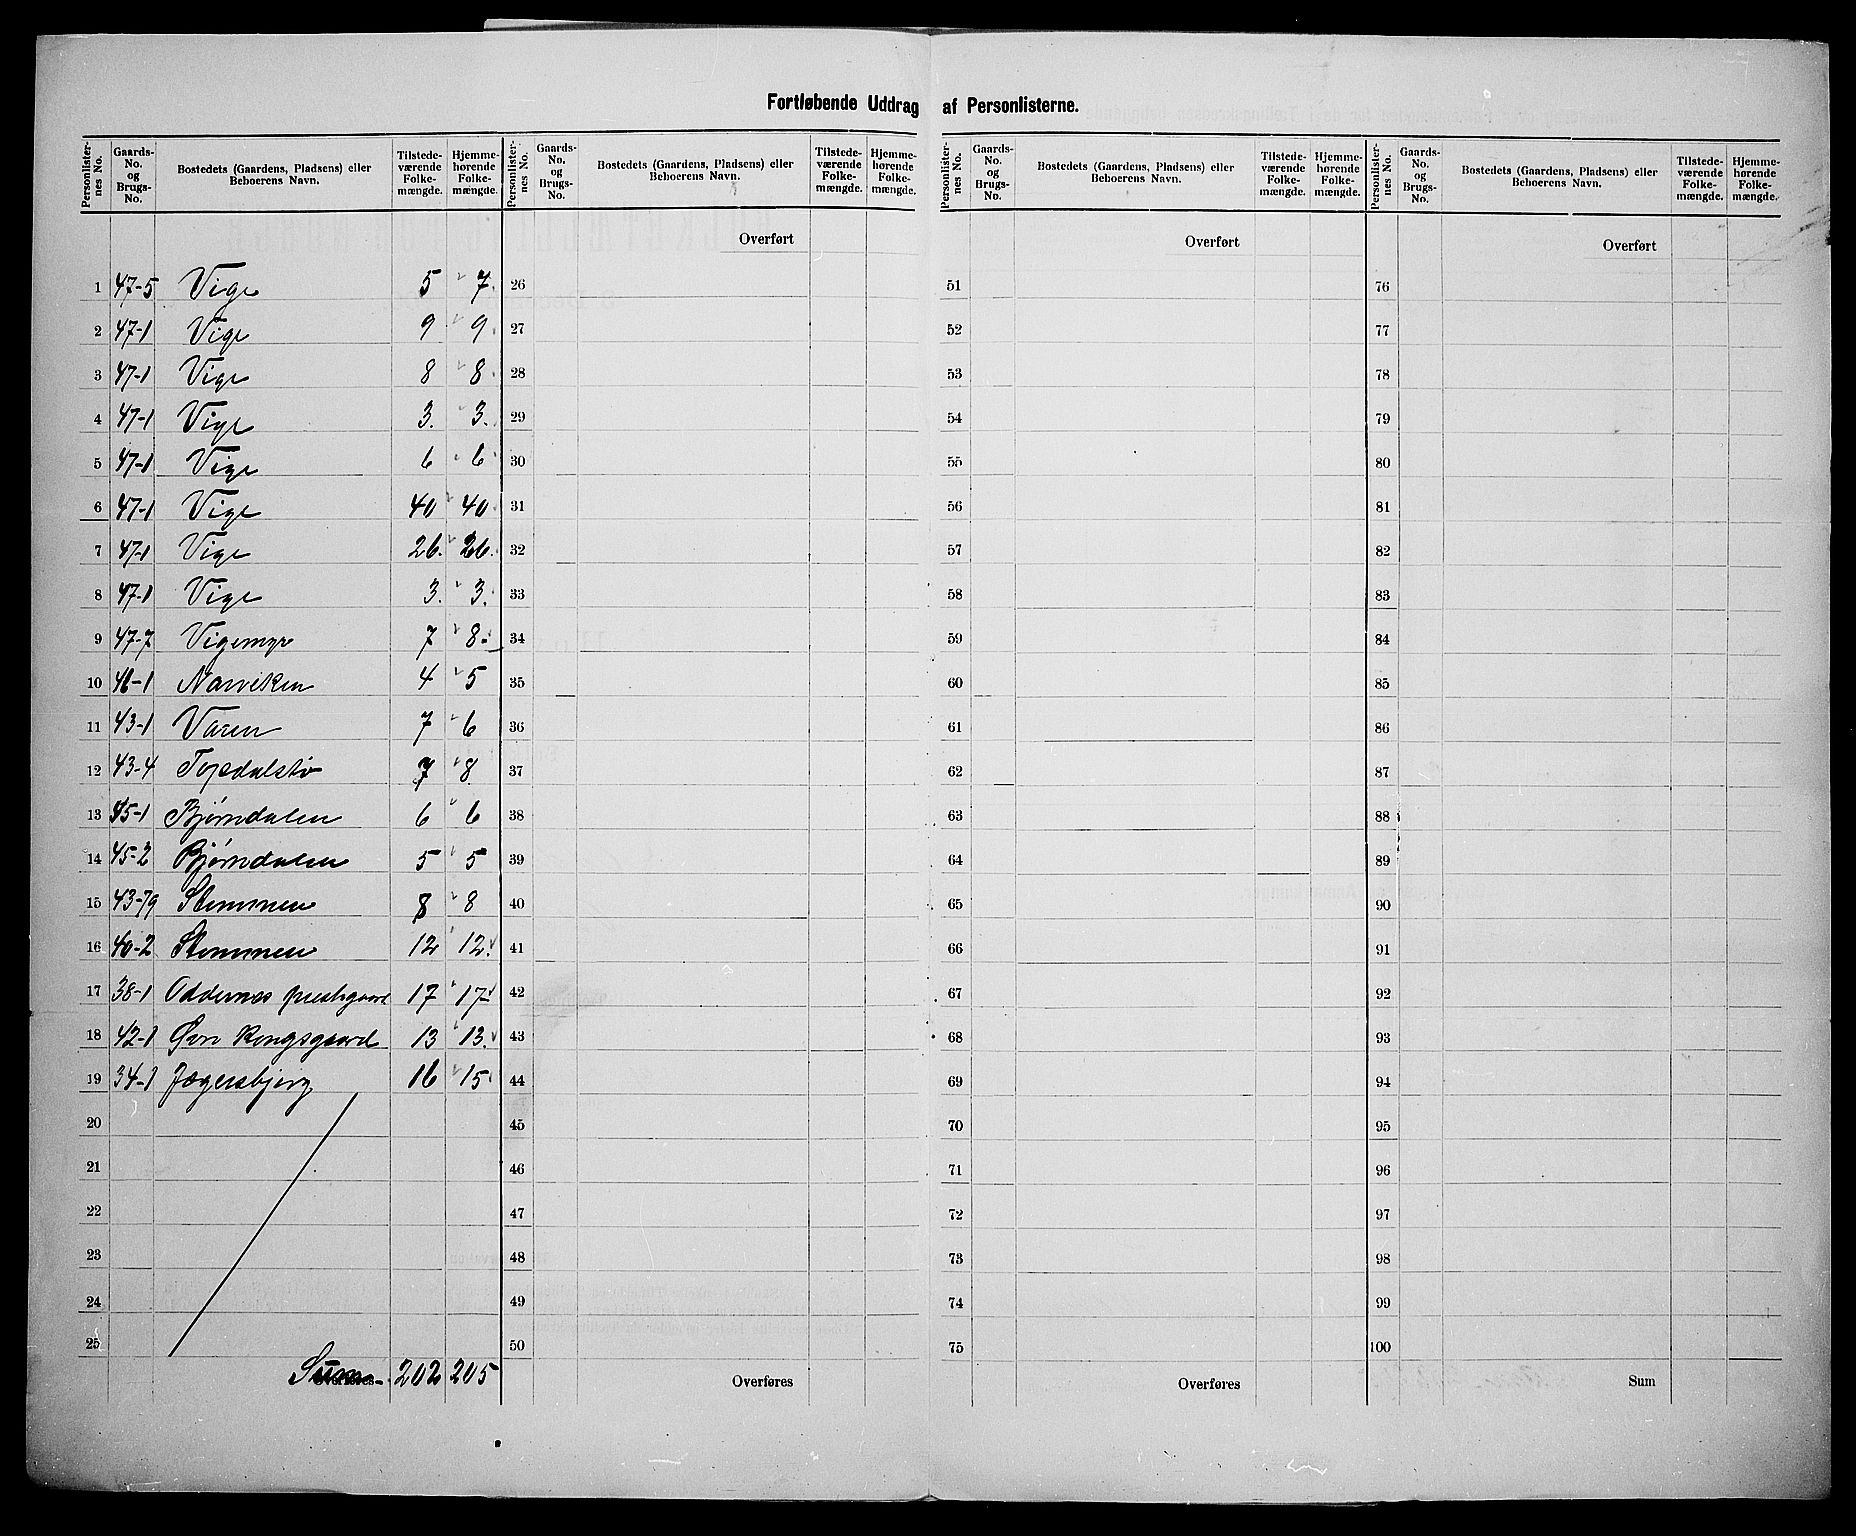 Fortløbende Uddrag af Personlisterne.
Personlister-nes No. Gaards-No. og Brugs-No. Bostedets (Gaardens, Pladsens) eller Beboerens Navn. Tilstede-værende Folke-mængde. Hjemme-hørende Folke-mængde.
1 47-5 Vige 5 7
2 47-1 Vige 9 9
3 47-1 Vige 8 8
4 47-1 Vige 3. 3.
5 47-1 Vige 6 6
6 47-1 Vige 40 40
7 47-1 Vige 26. 26.
8 47-1 Vige 3. 3.
9 47-7 Vigemyr 7 8
10 46-1 Narviken 4 5
11 43-1 Varen 7 6
12 43-4 Topdalstø 7 8
13 45-1 Bjørndalen 6 6
14 45-2 Bjørndalen 5 5
15 43-79 Stemmen 8 8
16 40-2 Stemmen 12 12.
17 38-1 Oddernes prestegaard 17 17
18 42-1 Øvre Kongsgaard 13 13.
19 34-1 Jægersbjerg 16 15
20
21
22
23
24
25
Overføres Sum 202 205
Personlister-nes No. Gaards-No. og Brugs-No. Bostedets (Gaardens, Pladsens) eller Beboerens Navn. Tilstede-værende Folke-mængde. Hjemme-hørende Folke-mængde.
Overført
26
27
28
29
30
31
32
33
34
35
36
37
38
39
40
41
42
43
44
45
46
47
48
49
50
Overføres
Personlister-nes No. Gaards-No. og Brugs-No. Bostedets (Gaardens, Pladsens) eller Beboerens Navn. Tilstede-værende Folke-mængde. Hjemme-hørende Folke-mængde.
Overført
51
52
53
54
55
56
57
58
59
60
61
62
63
64
65
66
67
68
69
70
71
72
73
74
75
Overføres
Personlister-nes No. Gaards-No. og Brugs-No. Bostedets (Gaardens, Pladsens) eller Beboerens Navn. Tilstede-værende Folke-mængde. Hjemme-hørende Folke-mængde.
Overført
76
77
78
79
80
81
82
83
84
85
86
87
88
89
90
91
92
93
94
95
96
97
98
99
100
Sum